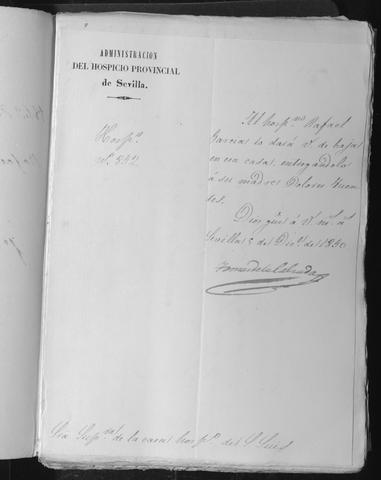 ADMINISTRACION
DEL HOSPICIO PROVINCIAL
de Sevilla.
Hosp.º
nº 852
Al hosp.no Rafael
Garcia lo dará V. de baja
en esa casa entregandolo
á su madre Dolores Fuen
tes.
Dios gue á V. m. a.
Sevilla 5 de Dic.e de 1850
Tomas de la Calzada
Sra Sup.ra de la casa hosp.o de S Luis